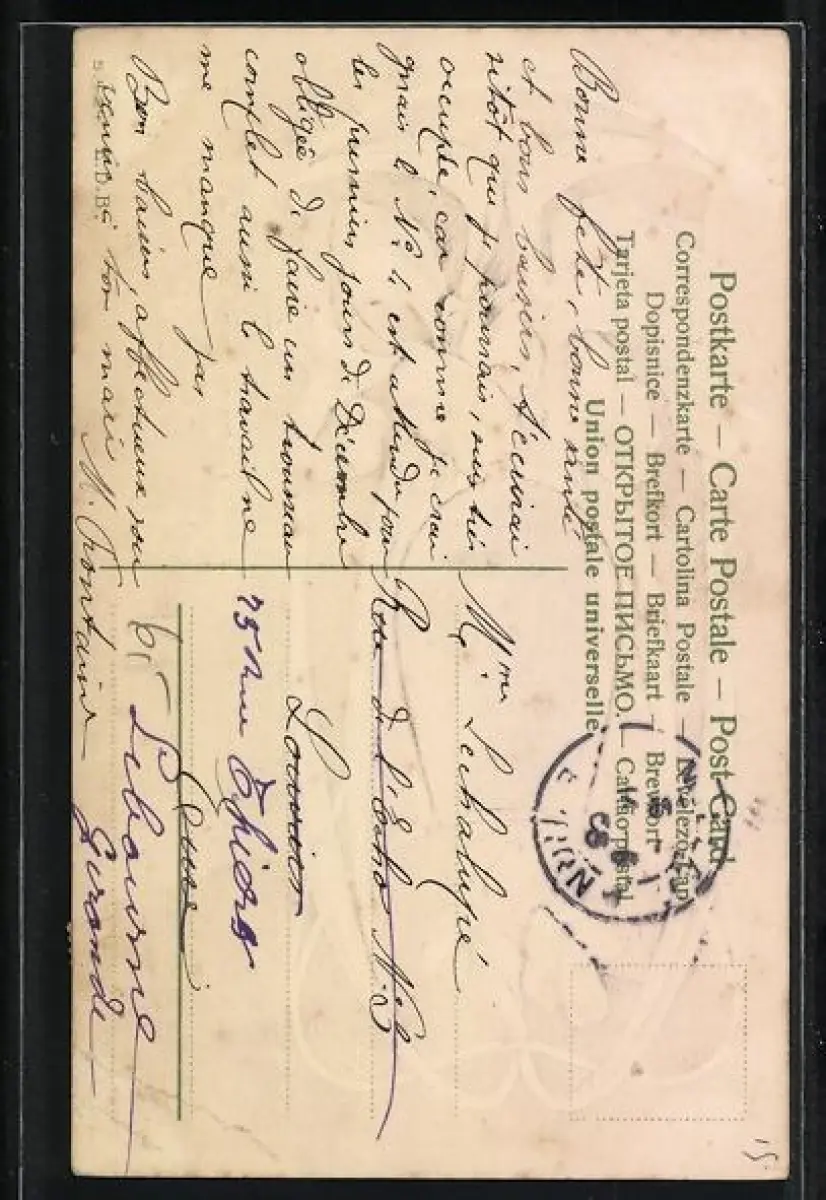 Postkarte — Carte Postale — Post Card
Correspondenzkarte — Cartolina Postale — Levelező-Lap
Dopisnice — Brefkort — Briefkaart — Brevkort
Tarjeta postal — ОТКРЫТОЕ ПИСЬМО. — Cartão postal
Union postale universelle.
Bonne fête, bonne santé
et bons baisers, t'écrirai
sitôt que je pourrais, suis très
occupé, car comme je crois
mais le No 4 est attendu pour
les premiers jours de Décembre
obligée de faire un trousseau
complet aussi le travail ne
me manque pas
Bons baisers affectueux
ton mari M. Fontaine
Mme Lechalupé
Rue de l'Echo No 5
Louviers
Eure
75 Rue Thiers
Libourne
Gironde
15